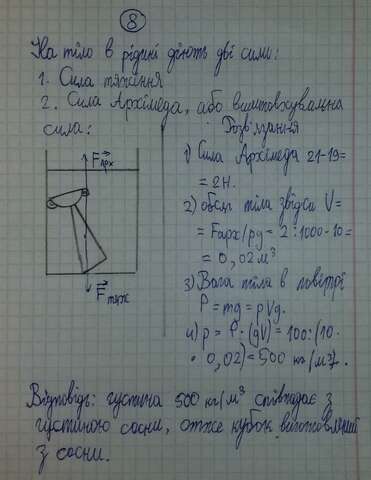 8
На тіло в рідині діють дві сили:
1. Сила тяжіння
2. Сила Архімеда, або виштовхувальна
сила:
Розв'язання
F арх
F тяж
1) Сила Архімеда 21-19=
= 2Н.
2) обсяг тіла звідси V=
= Fарх/рg = 2:1000·10=
= 0,02м³
3) Вага тіла в повітрі
P = mg = pVg.
4) p = P:(gV) = 100:(10·
· 0,02) = 500 кг/(м³).
Відповідь: густина 500 кг/м³ співпадає з
густиною сосни, отже кубок виготовлений
з сосни.